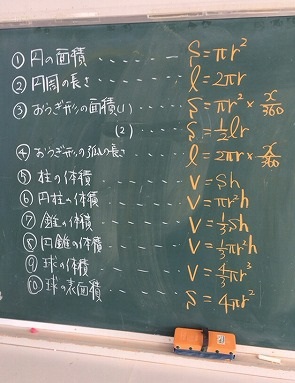 ① 円の面積 ‥‥‥ S = πr²
② 円周の長さ ‥‥‥ l = 2πr
③ おうぎ形の面積(1) ‥‥‥ S = πr² × x/360
(2) ‥‥‥ S = 1/2 lr
④ おうぎ形の弧の長さ ‥‥‥ l = 2πr × x/360
⑤ 柱の体積 ‥‥‥ V = Sh
⑥ 円柱の体積 ‥‥‥ V = πr²h
⑦ 錐の体積 ‥‥‥ V = 1/3 Sh
⑧ 円錐の体積 ‥‥‥ V = 1/3 πr²h
⑨ 球の体積 ‥‥‥ V = 4/3 πr³
⑩ 球の表面積 ‥‥‥ S = 4πr²